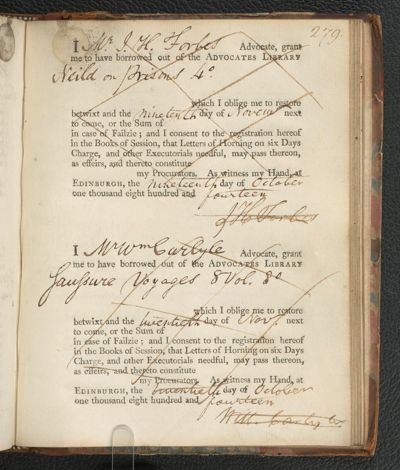 279.
I Mr J. H. Forbes Advocate, grant
me to have borrowed out of the ADVOCATES LIBRARY
Neild on Prisons 4o
which I oblige me to restore
betwixt and the nineteenth day of Novem next
to come, or the Sum of
in case of Failzie; and I consent to the registration hereof
in the Books of Session, that Letters of Horning on six Days
Charge, and other Executorials needful, may pass thereon,
as effeirs, and thereto constitute
my Procurators. As witness my Hand, at
EDINBURGH, the nineteenth day of October
one thousand eight hundred and fourteen
J H Forbes
I Mr Wm Carlyle Advocate, grant
me to have borrowed out of the ADVOCATES LIBRARY
Saussure Voyages 8 Vol. 8o
which I oblige me to restore
betwixt and the twentieth day of Novr. next
to come, or the Sum of
in case of Failzie; and I consent to the registration hereof
in the Books of Session, that Letters of Horning on six Days
Charge, and other Executorials needful, may pass thereon,
as effeirs, and thereto constitute
my Procurators. As witness my Hand, at
EDINBURGH, the twentieth day of October
one thousand eight hundred and fourteen
Will. Carlyle